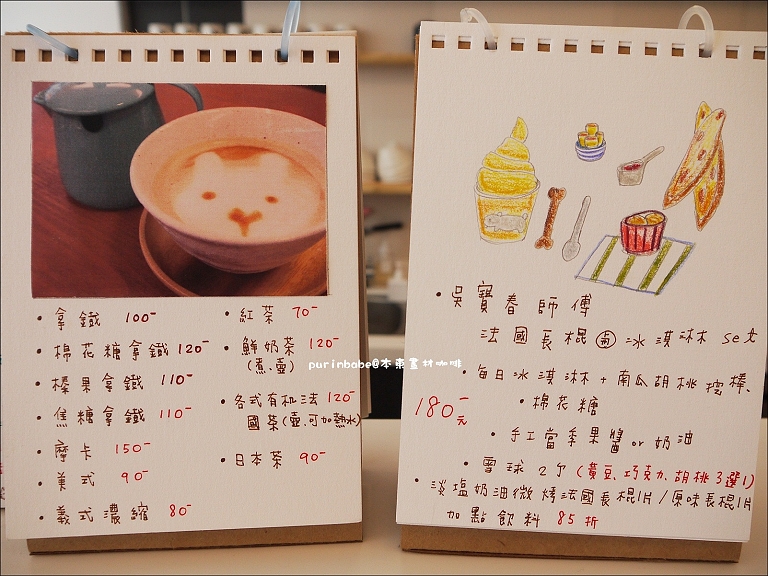 拿鐵 100-
棉花糖拿鐵 120-
榛果拿鐵 110-
焦糖拿鐵 110-
摩卡 150-
美式 90-
義式濃縮 80-
紅茶 70-
鮮奶茶 120-
(煮.壺)
各式有机法 120-
國茶(壺.可加熱水)
日本茶 90-
purinbabe@本東畫材咖啡
吳寶春師傅
法國長棍 冰淇淋 set
每日冰淇淋+南瓜胡桃捏棒、
棉花糖
180-元
手工當季果醬or奶油
雪球2个(黃豆.巧克力.胡桃3選1)
淡塩奶油微烤法國長棍1片/原味長棍1片
加點飲料 85折